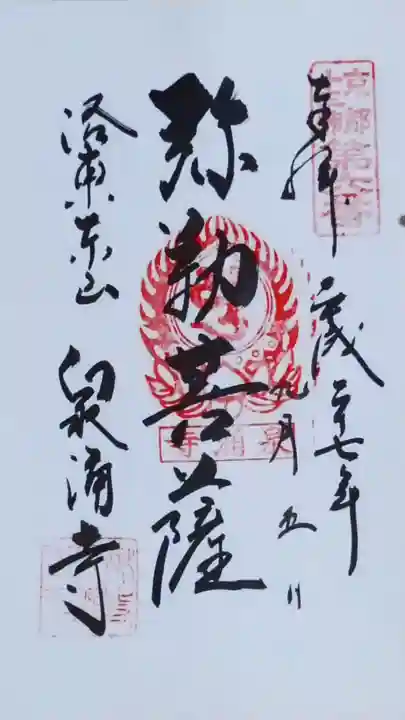 京都
十三佛第六番
奉拝
平成二十七年
九月五日
弥勒菩薩
泉涌寺
洛東東山
泉涌寺